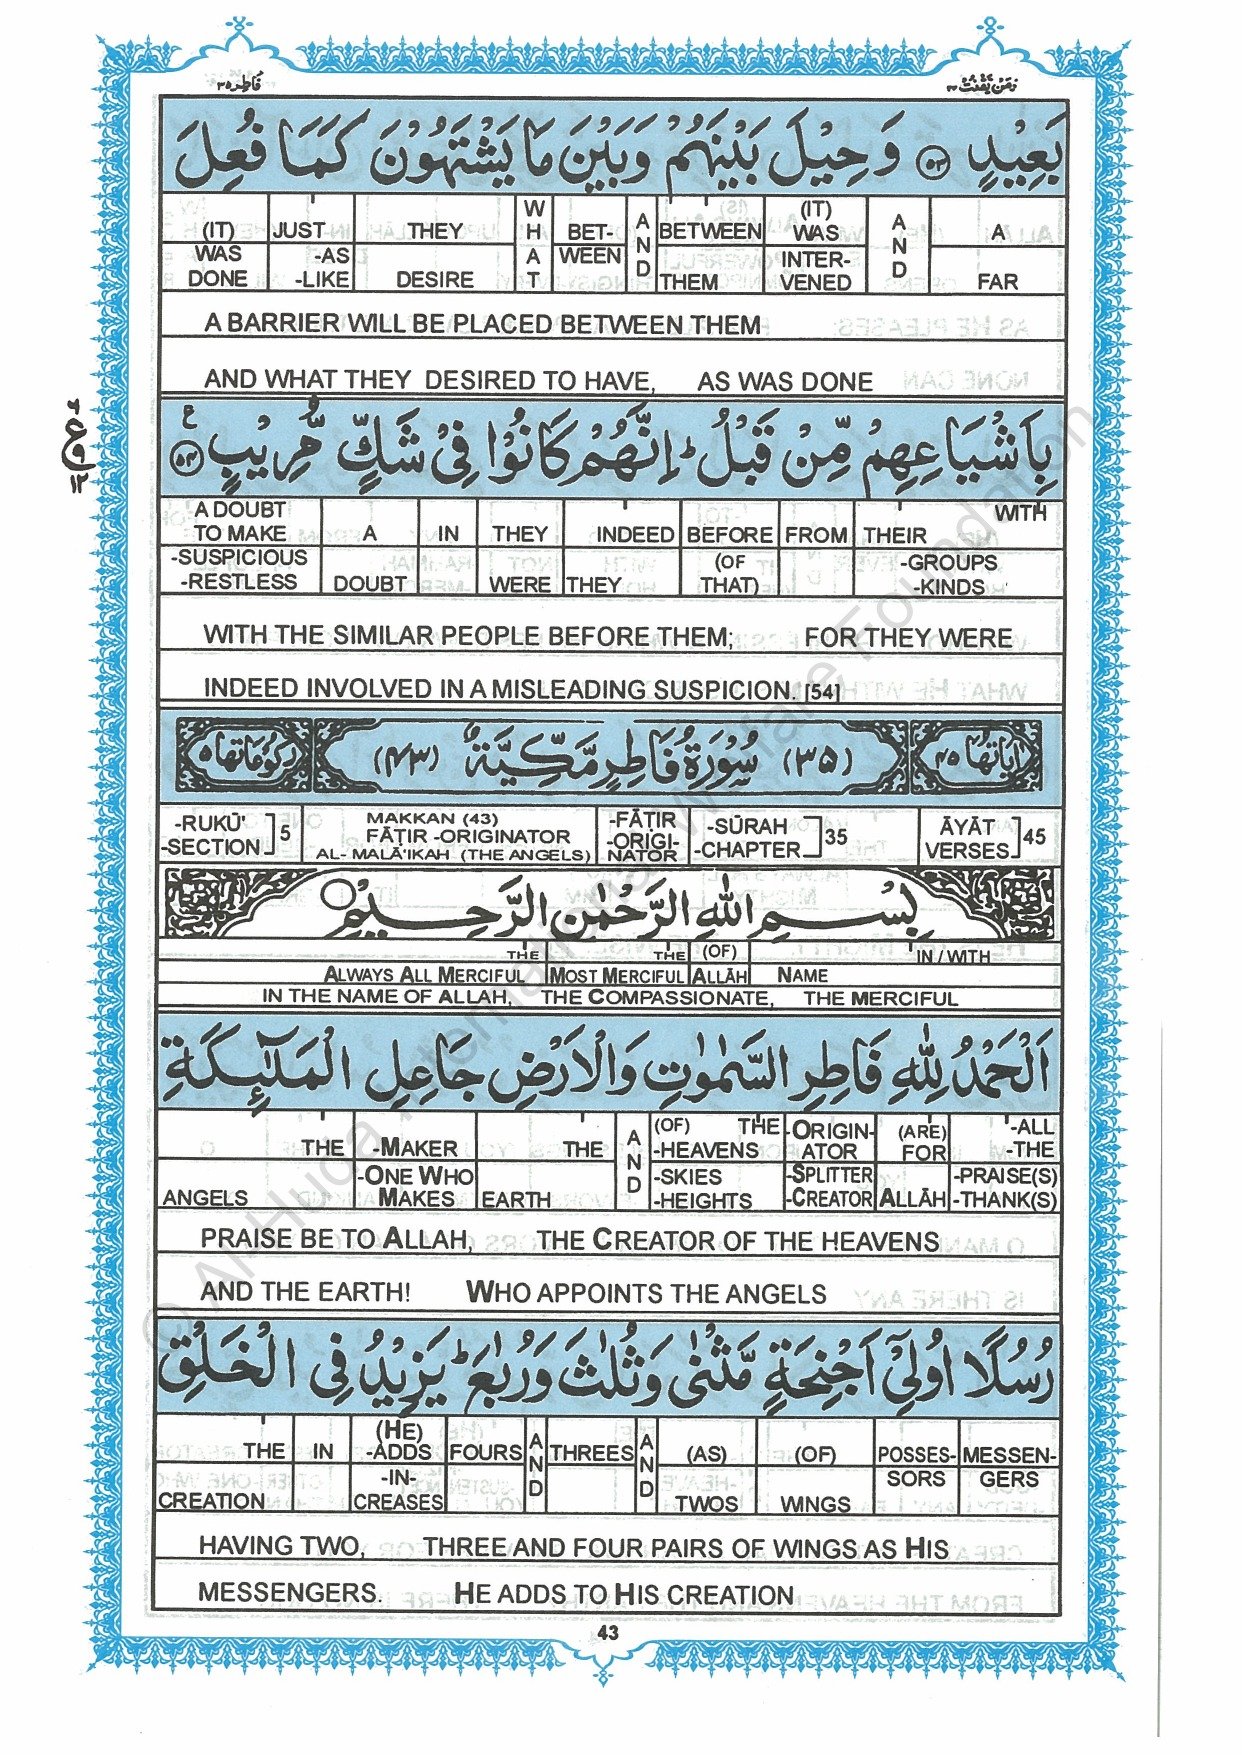 فاطر ٣٥ ومن يقنت ٢٢
بَعِيْدٍ ﴿٥٣﴾ وَحِيْلَ بَيْنَهُمْ وَبَيْنَ مَا يَشْتَهُوْنَ كَمَا فُعِلَ
(IT) WAS DONE | JUST -AS -LIKE | THEY DESIRE | WHAT | BET- WEEN | AND | BETWEEN THEM | (IT) WAS INTER- VENED | AND | A FAR
A BARRIER WILL BE PLACED BETWEEN THEM
AND WHAT THEY DESIRED TO HAVE, AS WAS DONE
بِاَشْيَاعِهِمْ مِّنْ قَبْلُ ؕ اِنَّهُمْ كَانُوْا فِيْ شَكٍّ مُّرِيْبٍ ﴿٥٤﴾ ع
A DOUBT TO MAKE -SUSPICIOUS -RESTLESS | A DOUBT | IN | THEY WERE | INDEED THEY | BEFORE (OF THAT) | FROM | WITH THEIR -GROUPS -KINDS
WITH THE SIMILAR PEOPLE BEFORE THEM; FOR THEY WERE
INDEED INVOLVED IN A MISLEADING SUSPICION. [54]
اٰيَاتُهَا ٤٥ (٣٥) سُوْرَةُ فَاطِرٍ مَّكِّيَّةٌ (٤٣) رُكُوْعَاتُهَا ٥
-RUKŪ' -SECTION ] 5 | MAKKAN (43) FĀṬIR -ORIGINATOR AL- MALĀ'IKAH (THE ANGELS) | -FĀṬIR -ORIGI- NATOR | -SŪRAH -CHAPTER ] 35 | ĀYĀT VERSES ] 45
بِسْمِ اللّٰهِ الرَّحْمٰنِ الرَّحِيْمِ
THE | THE | (OF) | IN / WITH
ALWAYS ALL MERCIFUL | MOST MERCIFUL | ALLĀH | NAME
IN THE NAME OF ALLAH, THE COMPASSIONATE, THE MERCIFUL
اَلْحَمْدُ لِلّٰهِ فَاطِرِ السَّمٰوٰتِ وَالْاَرْضِ جَاعِلِ الْمَلٰٓئِكَةِ
THE ANGELS | -MAKER -ONE WHO MAKES | THE EARTH | AND | (OF) THE -HEAVENS -SKIES -HEIGHTS | -ORIGIN- ATOR -SPLITTER -CREATOR | (ARE) FOR ALLĀH | -ALL -THE -PRAISE(S) -THANK(S)
PRAISE BE TO ALLAH, THE CREATOR OF THE HEAVENS
AND THE EARTH! WHO APPOINTS THE ANGELS
رُسُلًا اُولِيْٓ اَجْنِحَةٍ مَّثْنٰى وَثُلٰثَ وَرُبٰعَ ؕ يَزِيْدُ فِي الْخَلْقِ
THE CREATION | IN | (HE) -ADDS -IN- CREASES | FOURS | AND | THREES | AND | (AS) TWOS | (OF) WINGS | POSSES- SORS | MESSEN- GERS
HAVING TWO, THREE AND FOUR PAIRS OF WINGS AS HIS
MESSENGERS. HE ADDS TO HIS CREATION
43